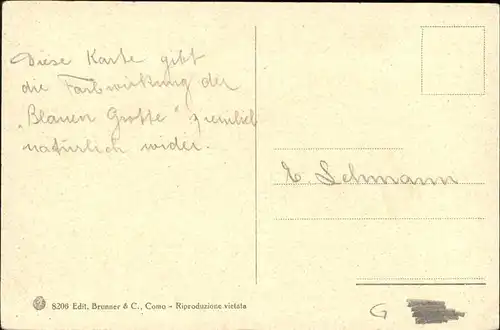 Diese Karte gibt
die Farbwirkung der
„Blauen Grotte" ziemlich
natürlich wider.
E. Lehmann
8206 Edit. Brunner & C., Como - Riproduzione vietata
G